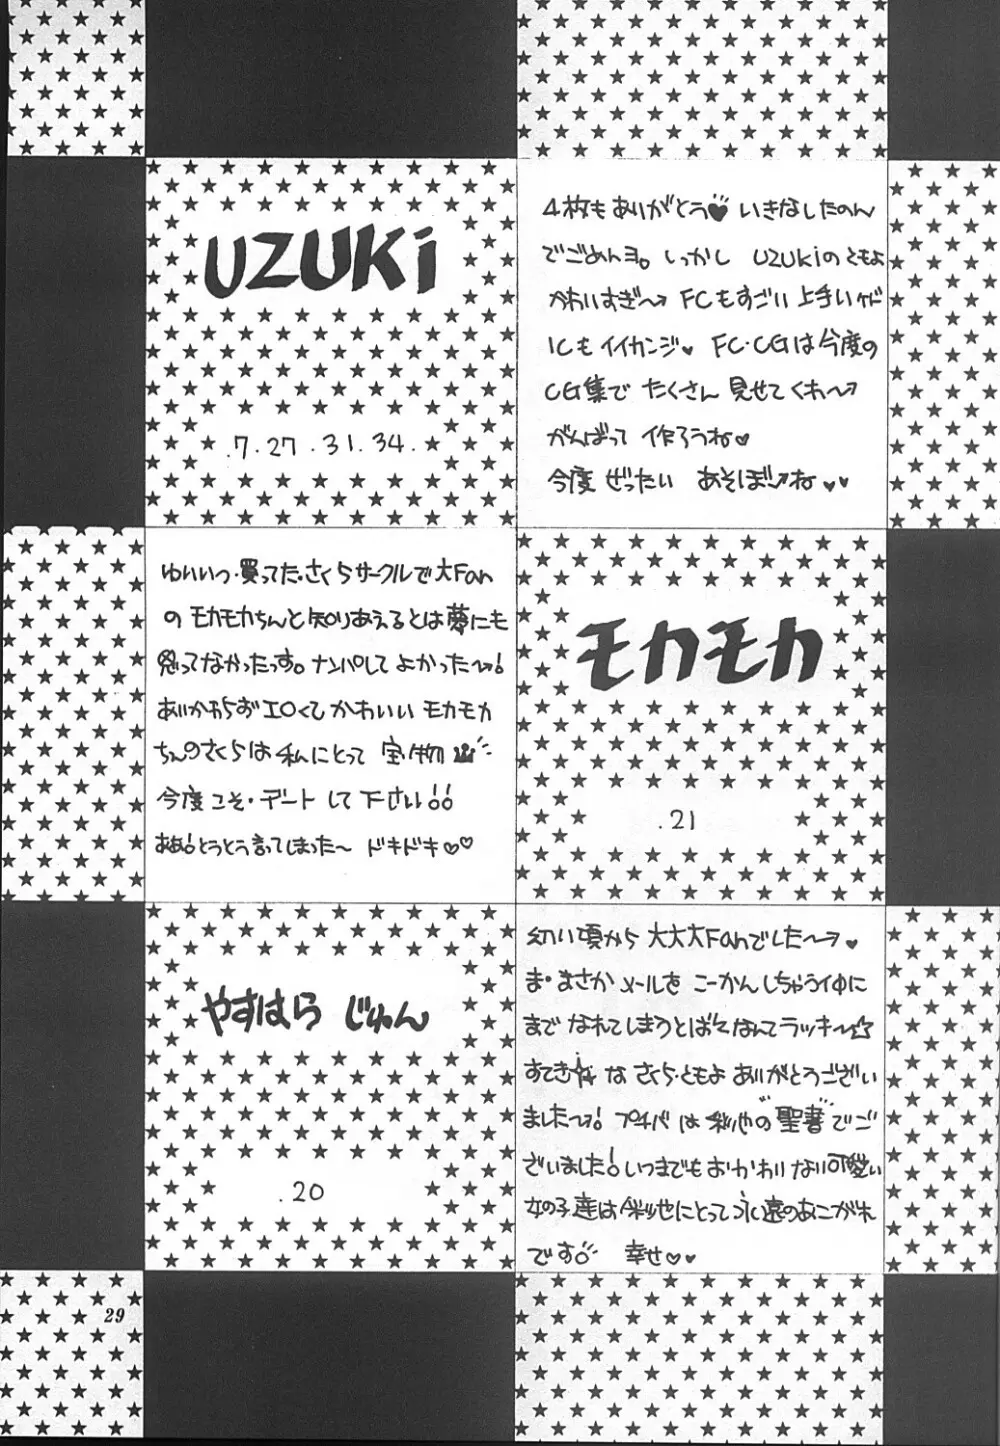 UZUKi
.7.27.31.34.
4枚もありがとう♥ いきなしたのん
でごめんヨ。しっかし UZUKiのともよ
かわいすぎ〜→ FCもすごい上手いケド
ICもイイカンジ♥ FC・CGは今度の
CG集で たくさん 見せてくれ〜→
がんばって 作ろうね♥
今度 ぜったい あそぼ→ね ♥♥
ゆいいつ・買ってた・さくらサークルで大Fan
の モカモカちんと知りあえるとは夢にも
思ってなかったっす。ナンパして よかった〜→!
あいかわらず エロくて かわいい モカモカ
ちんのさくらは 私にとって 宝物
今度こそ・デート して 下さい!!
ああ!とうとう言ってしまった〜 ドキドキ♡♡
モカモカ
.21
やすはら じゅん
.20
幼い頃から 大大大Fanでした〜→♥
ま・まさか メールを こーかん しちゃうイ中に
まで なれてしまうとは"て なんてラッキ〜☆
すてき☆ な さくら・ともよ ありがとうござい
ました〜→! プチパ は 彩世の "聖書"でご
ざいました!いつまでもおかわりない可愛い
女の子達は 彩世にとって 永遠のあこがれ
です。 幸せ♥♥
29